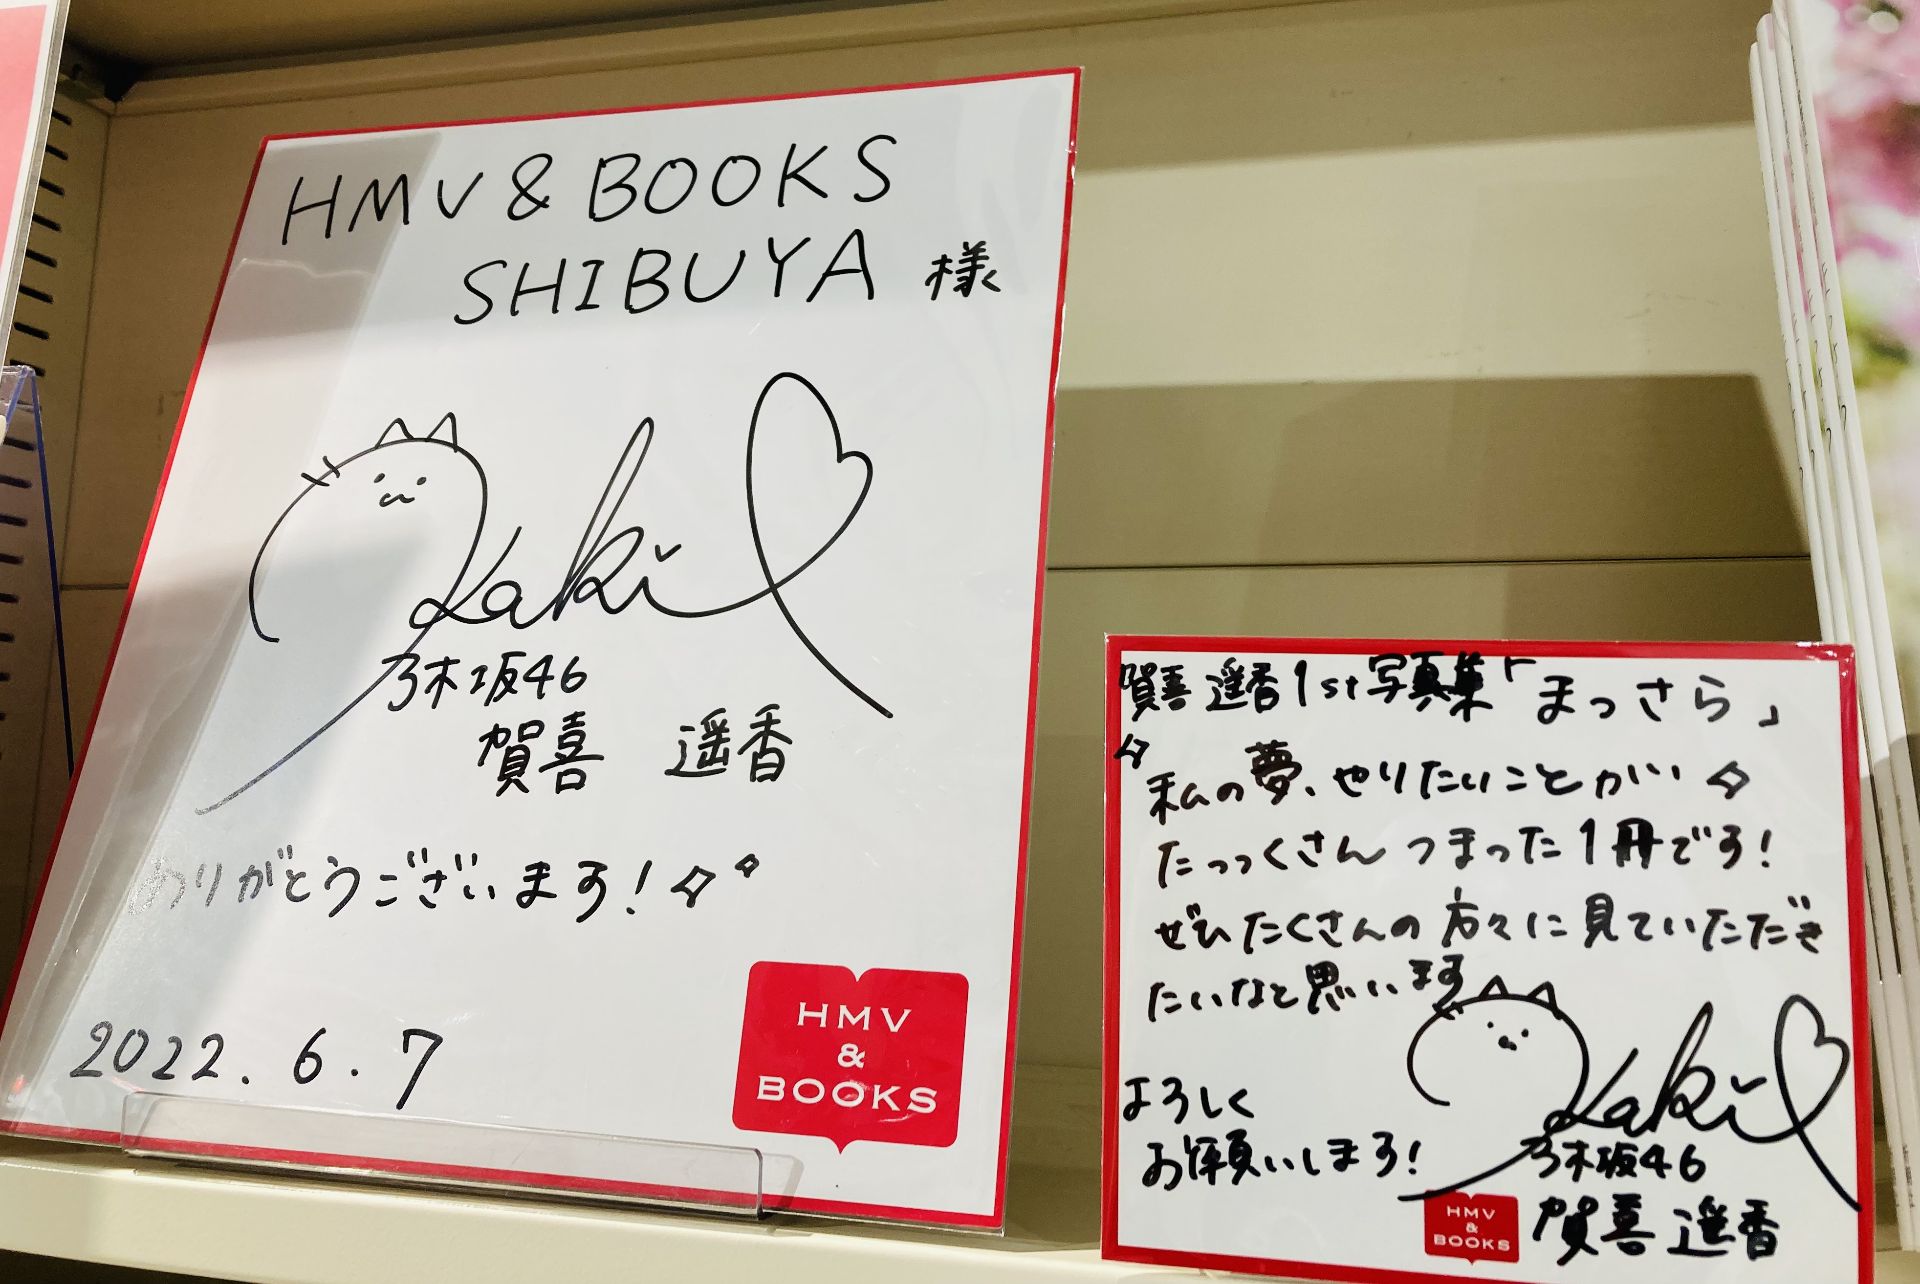 HMV & BOOKS
SHIBUYA 様
Kaki
乃木坂46
賀喜 遥香
ありがとうございます!
2022.6.7
HMV
&
BOOKS
賀喜 遥香 1st写真集「まっさら」
私の夢、やりたいことがい
たっっくさんつまった1冊です!
ぜひたくさんの方々に見ていただき
たいなと思います
Kaki
よろしく
お願いします!
乃木坂46
賀喜 遥香
HMV
&
BOOKS